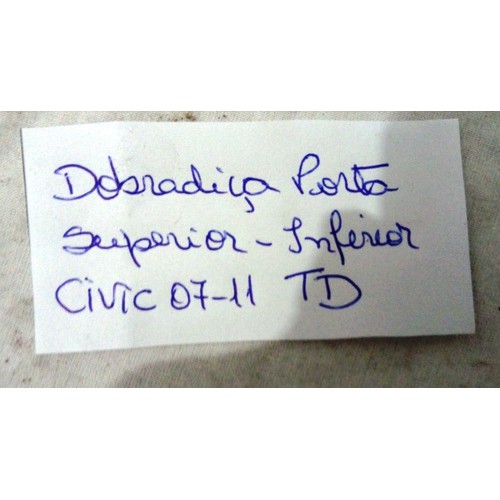 Dobradiça Porta
Superior - Inferior
Civic 07-11 TD